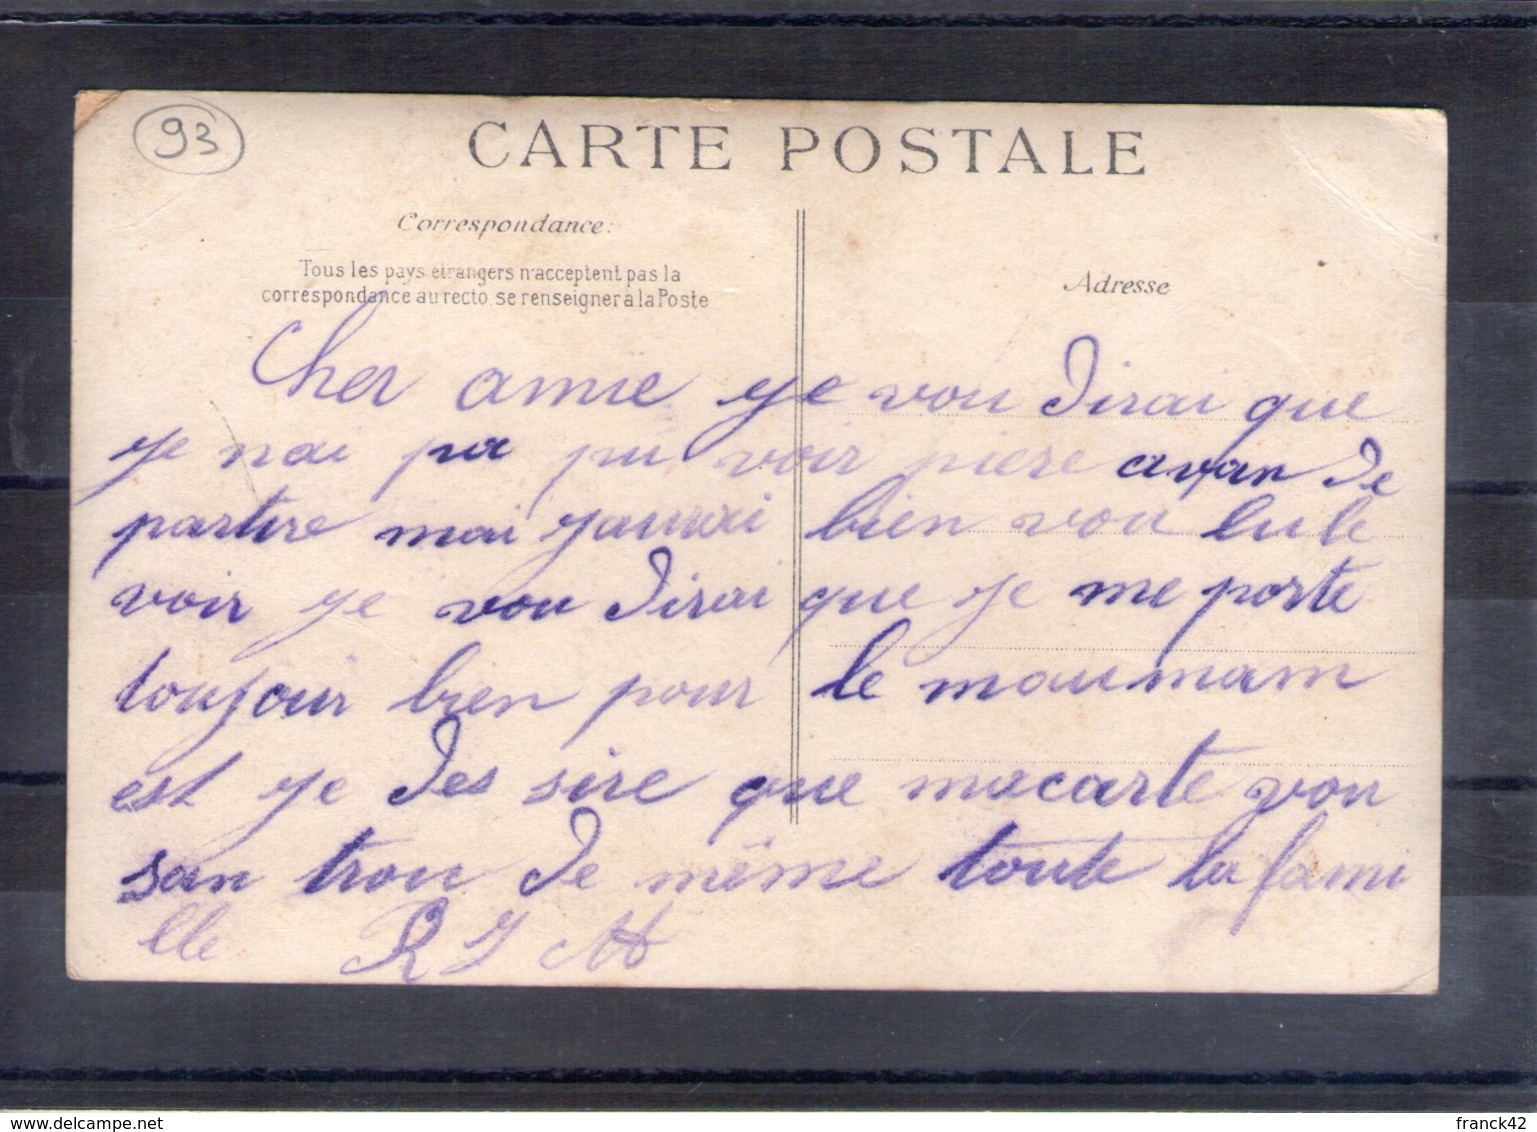 93
CARTE POSTALE
Correspondance:
Tous les pays etrangers n'acceptent pas la
correspondance au recto, se renseigner à la Poste
Adresse
Cher amie ye vou dirai que
ye nai pa pu voir piere avan de
partire mai yaurai bien vou lu le
voir ye vou dirai que ye me porte
toujour bien pour le moumam
est ye des sire que macarte vou
san trou de même toute la fami
lle R J M
www.delcampe.net
franck42